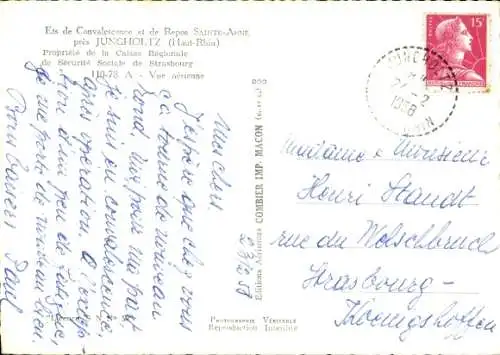 Ets de Convalescence et de Repos SAINTE-ANNE
près JUNGHOLTZ (Haut-Rhin)
Propriété de la Caisse Régionale
de Sécurité Sociale de Strasbourg
110-78 A - Vue aérienne
15F
JUNGHOLTZ
1958
RHIN
Mes chers,
J'espère que chez vous
ça tourne de nouveau
rond, moi pour ma part
je suis en convalescence,
après opération à l'
d'un peu de
je me porte de nouveau bien.
Bons baisers Paul
Editions Aériennes COMBIER IMP. MACON
Madame & Monsieur
Henri Staudt
rue du Welschbruch
Strasbourg -
Koenigshoffen
PHOTOGRAPHIE VÉRITABLE
Reproduction Interdite